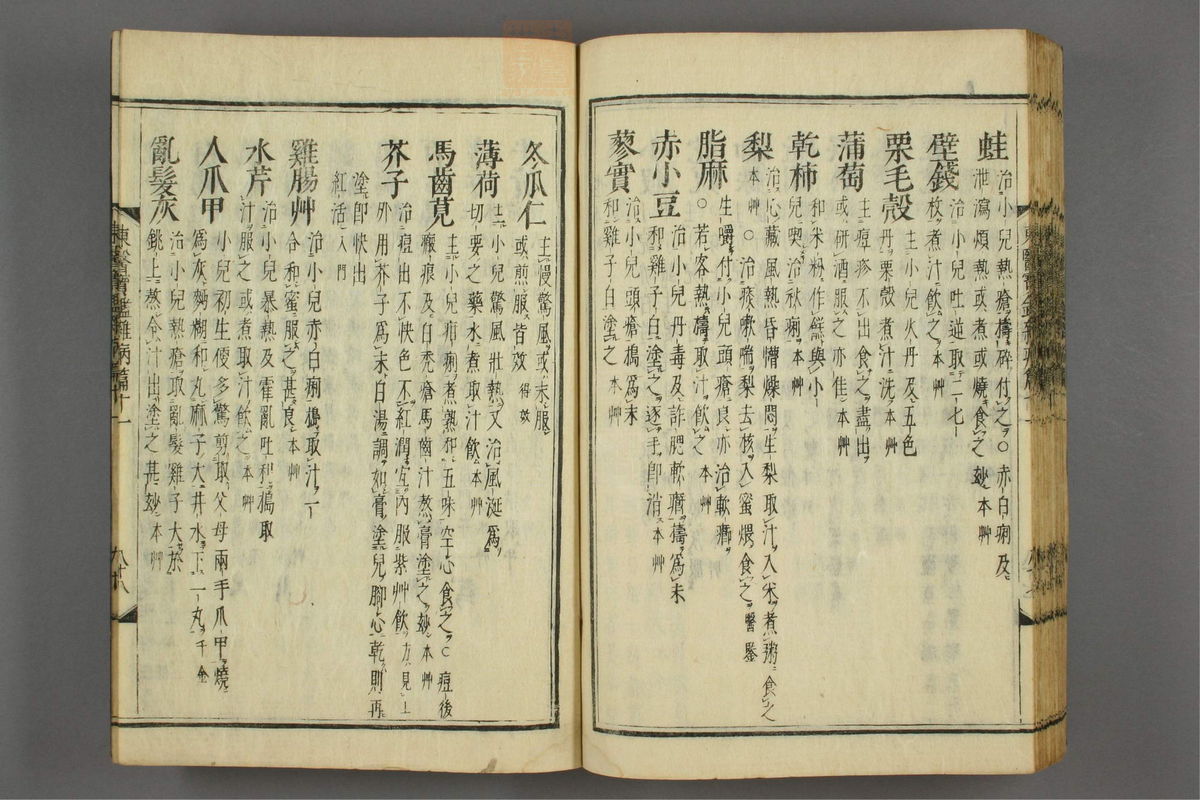 蛙治小兒熱瘡擣碎付之○赤白痢及
泄瀉煩熱或煮或燒食之妙本艸
壁錢治小兒吐逆取二七
枚煮汁飲之本艸
栗毛殼主小兒火丹及五色
丹栗殼煮汁洗本艸
蒲萄主痘疹不出食之盡出
或研酒服之亦佳本艸
乾柿和米粉作餻與小
兒喫治秋痢本艸
梨治心藏風熱昏懵燥悶生梨取汁入米煮粥食之
本艸○治痰嗽喘梨去核入蜜煨食之醫鑒
脂麻生嚼付小兒頭瘡良亦治軟癤
○若客熱擣取汁飲之本艸
赤小豆治小兒丹毒及詐肥軟癤擣爲末
和雞子白塗之逐手卽消本艸
蓼實治小兒頭瘡搗爲末
和雞子白塗之本艸
冬瓜仁主慢驚風或末服
或煎服皆效得效
薄荷主小兒驚風壯熱又治風涎爲
切要之藥水煮取汁飲本艸
馬齒莧主小兒疳痢煮熟和五味空心食之○痘後
瘢痕及白禿瘡馬齒汁熬膏塗之妙本艸
芥子治痘出不快色不紅潤宜內服紫艸飲方見上
外用芥子爲末白湯調如膏塗兒腳心乾則再
塗卽快出
紅活入門
雞腸艸治小兒赤白痢搗取汁一
合和蜜服之甚良本艸
水芹治小兒暴熱及霍亂吐利搗取
汁服之或煮取汁飲之本艸
人爪甲小兒初生便多驚剪取父母兩手爪甲燒
爲灰麪糊和丸麻子大井水下一丸千金
亂髮灰治小兒熱瘡取亂髮雞子大於
銚上熬令汁出塗之甚妙本艸
東醫寶鑑雜病篇十一
八十八